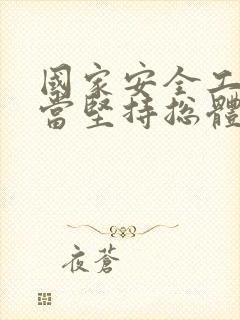 國家安全工
當堅持總體
夜蒼